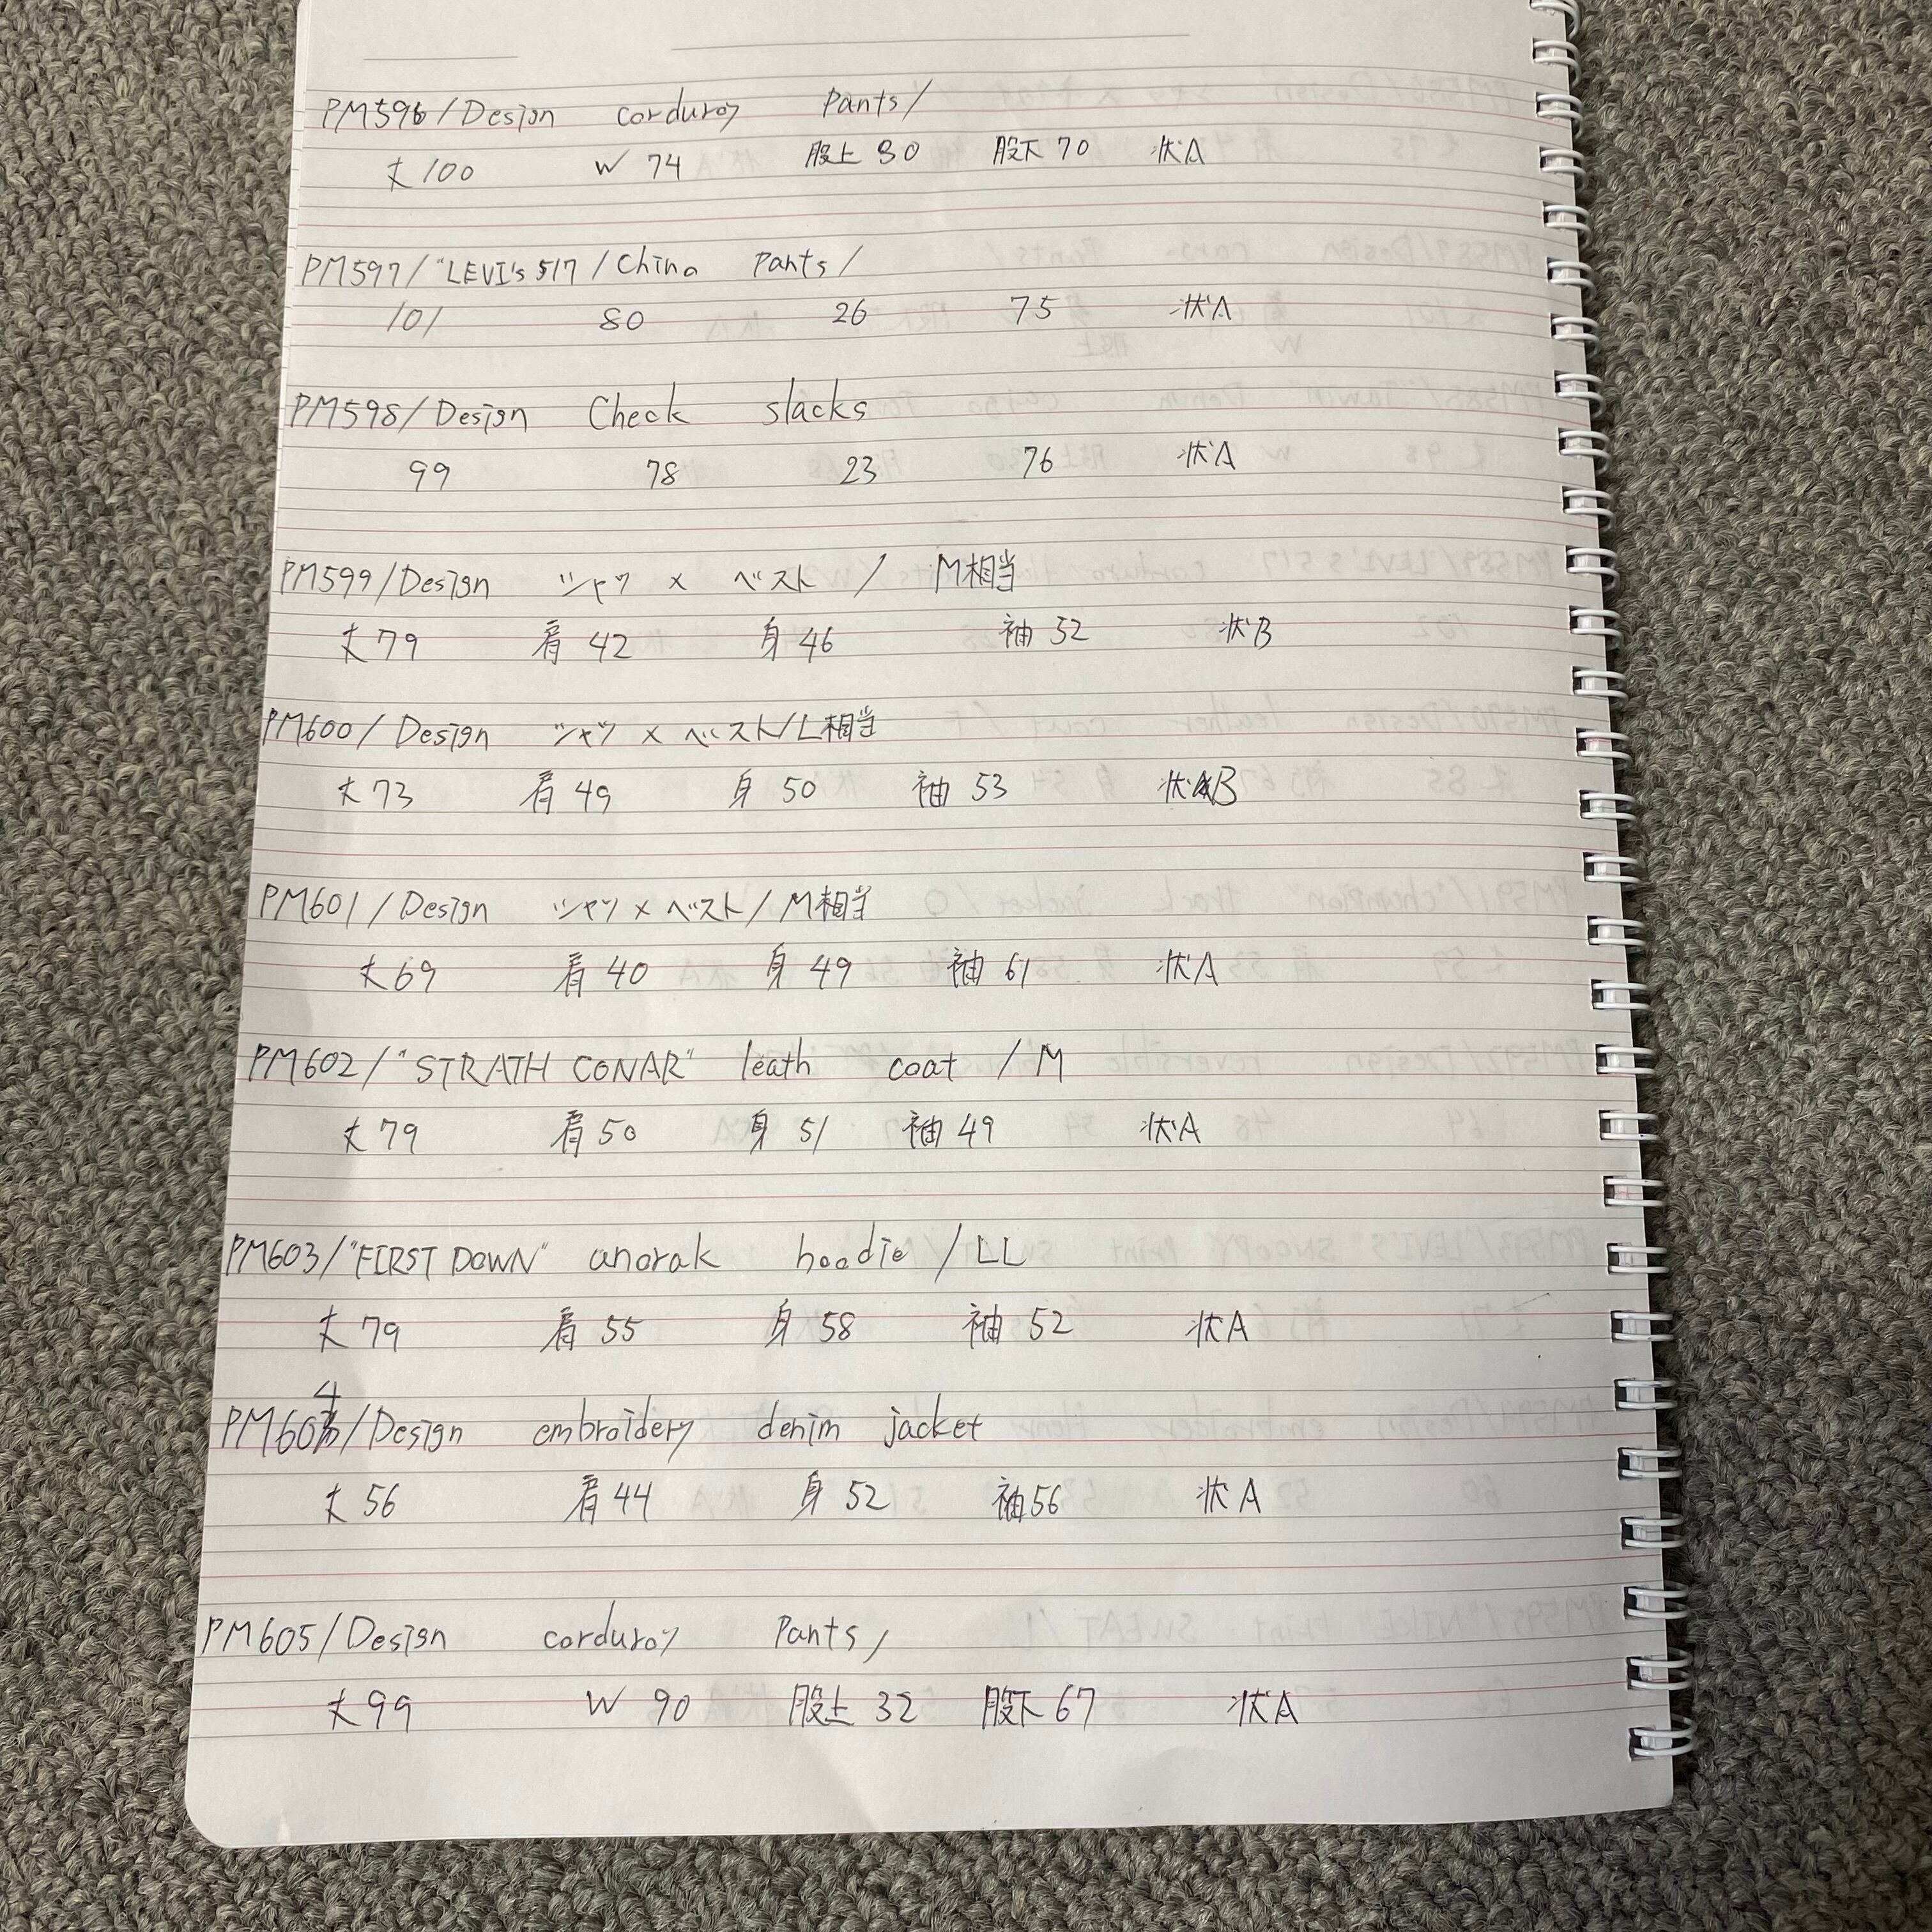 PM596/Design corduroy Pants/
丈100 W 74 股上 30 股下 70 状A
PM597/"LEVI's 517/China Pants/
101 80 26 75 状A
PM598/Design Check slacks
99 78 23 76 状A
PM599/Design シャツ × ベスト / M相当
丈79 肩 42 身 46 袖 52 状B
PM600/Design シャツ × ベスト/L相当
丈73 肩 49 身 50 袖 53 状B
PM601/Design シャツ×ベスト/M相当
丈69 肩 40 身 49 袖 61 状A
PM602/"STRATH CONAR" leath coat /M
丈79 肩50 身 51 袖 49 状A
PM603/"FIRST DOWN" anorak hoodie /LL
丈79 肩 55 身 58 袖 52 状A
PM604/Design embroidery denim jacket
丈56 肩44 身 52 袖56 状A
PM605/Design corduroy Pants/
丈99 W 90 股上 32 股下 67 状A